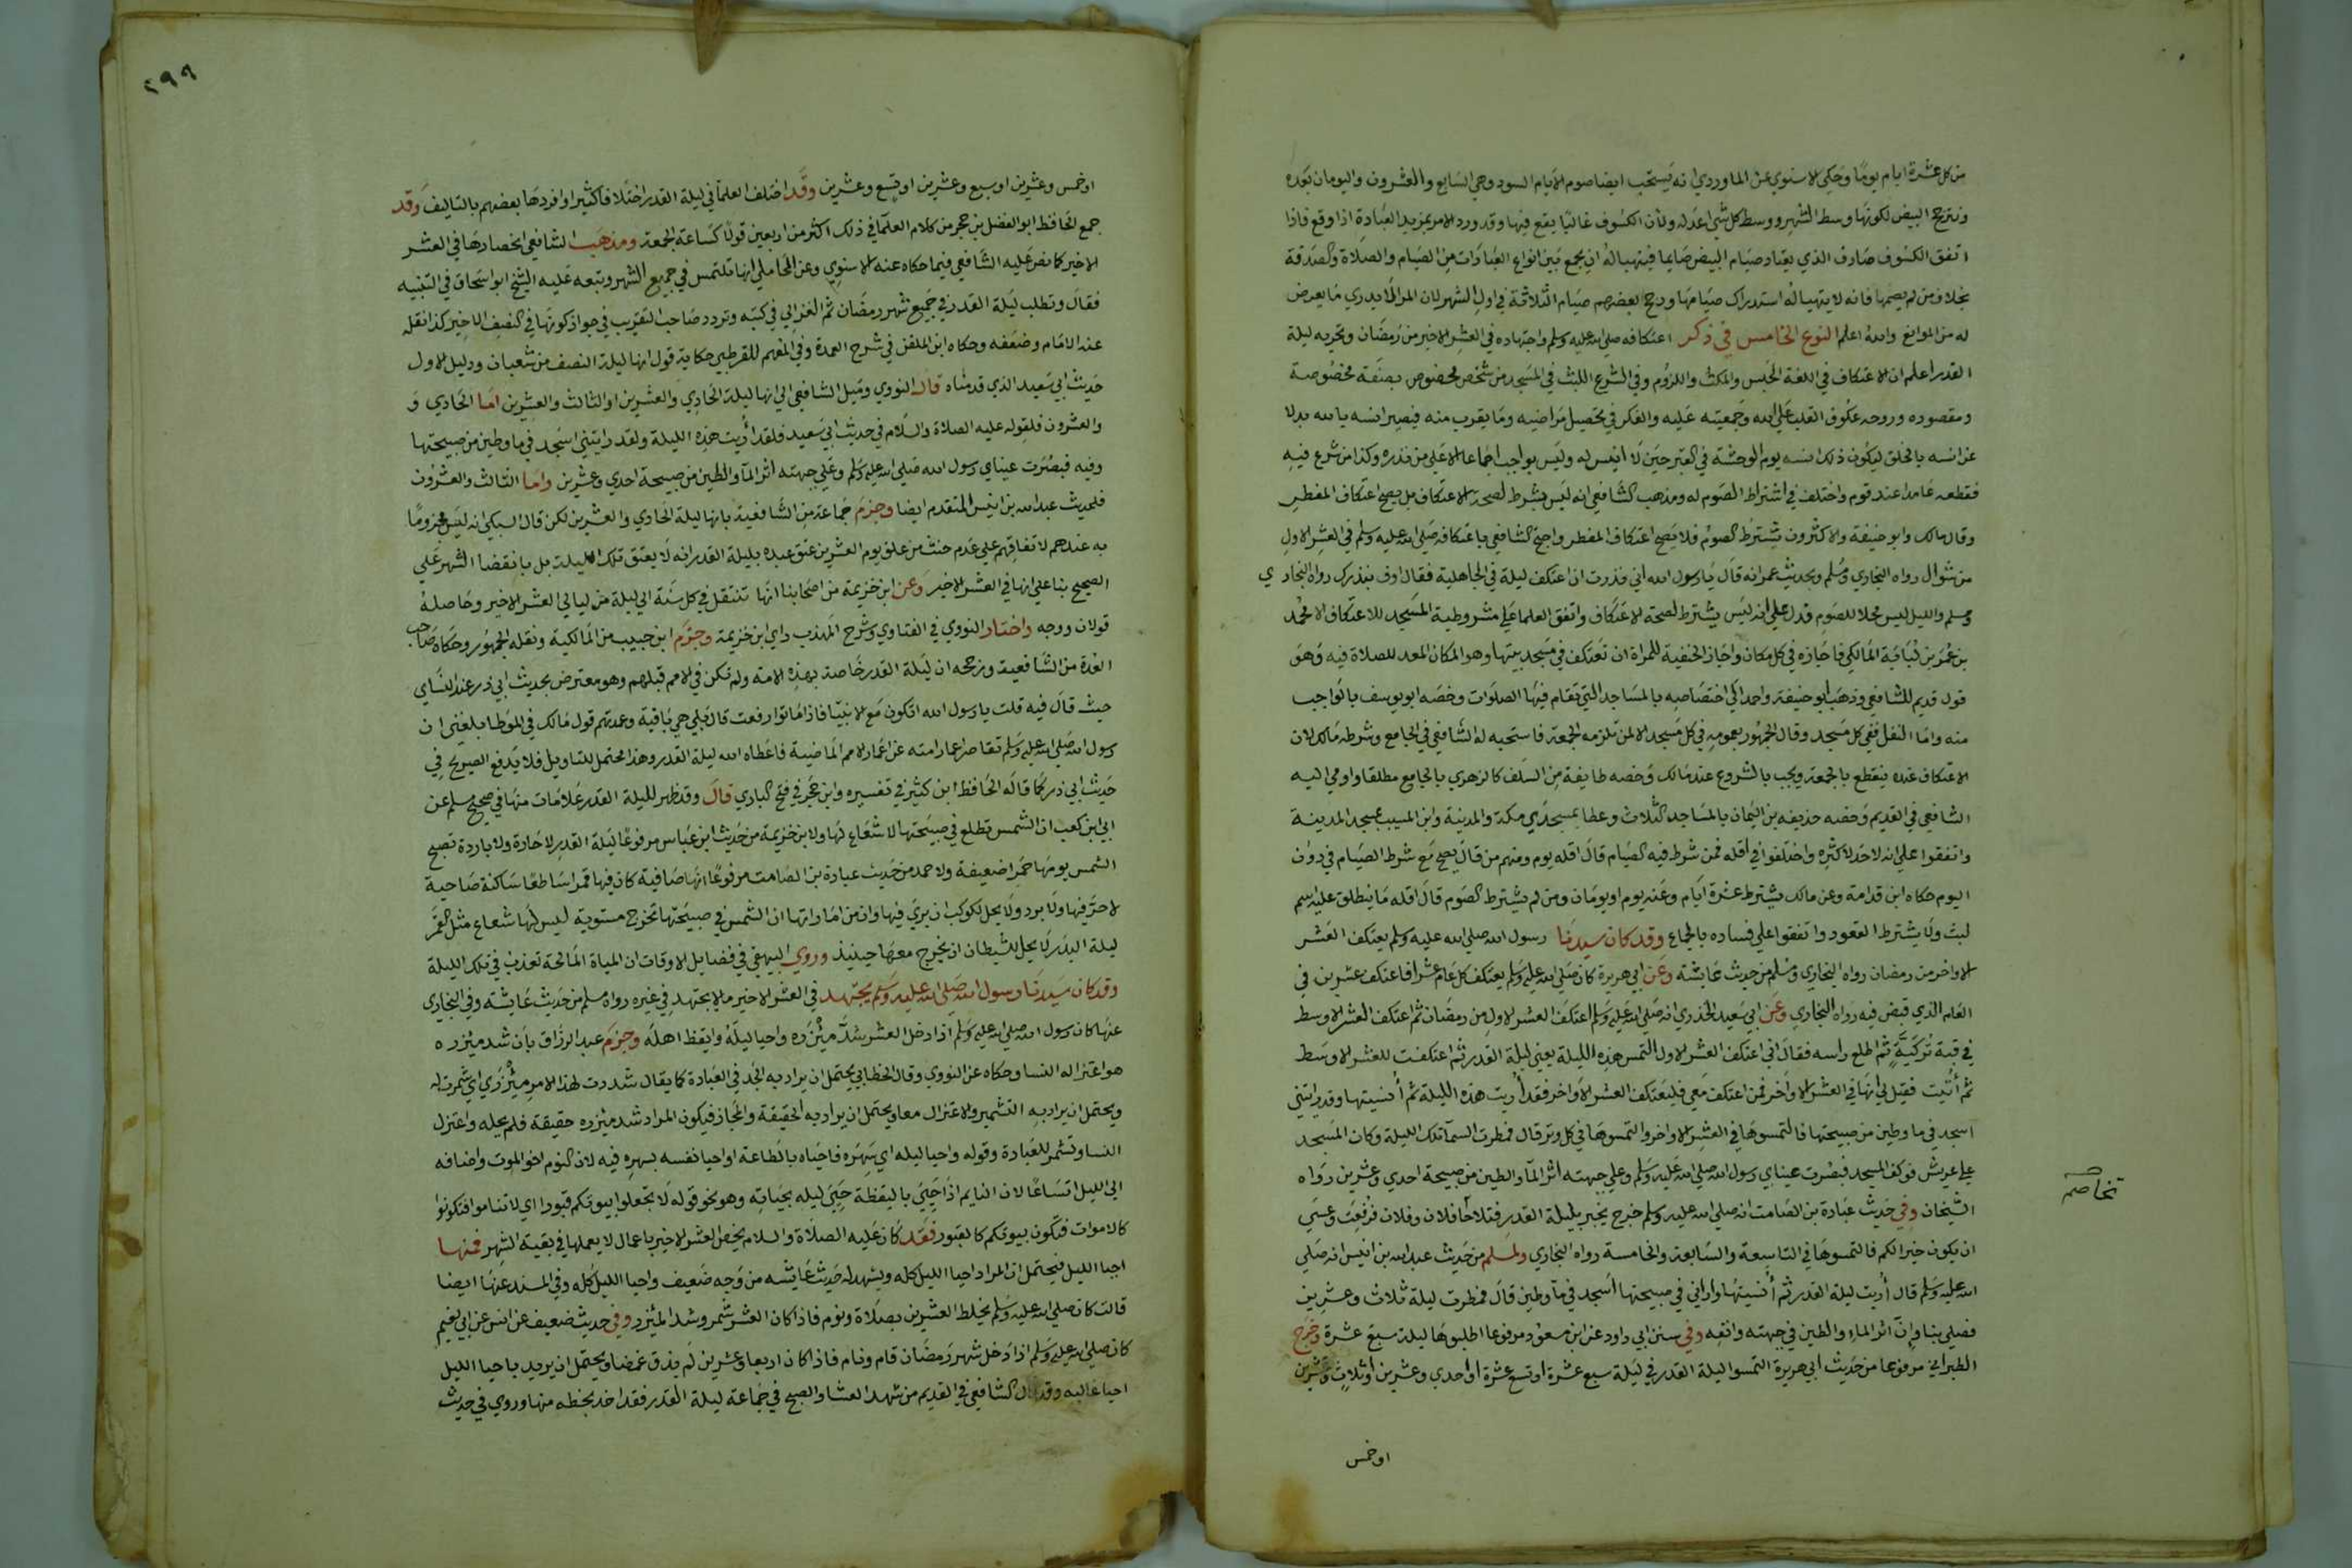 من كل عشرة ايام يوما وحكى الاسنوي عن الماوردي انه يستحب ايضا صوم الايام السود وهي السابع والعشرون واليومان بعده
وتترجح البيض لكونها وسط الشهر ووسط كل شي اعدله ولان الكسوف غالبا يقع فيها وقد ورد الامر بمزيد العبادة اذا وقع فاذا
اتفق الكسوف صادف الذي يعتاد صيام البيض صايما فيتهيا له ان يجمع بين انواع العبادات من الصيام والصلاة والصدقة
بخلاف من لم يصمها فانه لا يتهيا له استدراك صيامها ورجح بعضهم صيام الثلاثة في اول الشهر لان المرا لا يدري ما يعرض
له من الموانع والله اعلم النوع الخامس في ذكر اعتكافه صلى الله عليه وسلم واجتهاده في العشر الاخير من رمضان وتحريه ليلة
القدر اعلم ان الاعتكاف في اللغة الحبس والمكث واللزوم وفي الشرع اللبث في المسجد من شخص مخصوص بصفة مخصوصة
ومقصوده وروحه عكوف القلب على الله وجمعيته عليه والفكر في تحصيل مراضيه وما يقرب منه فيصير انسه بالله بدلا
عن انسه بالخلق ليكون ذلك انسه يوم الوحشة في القبر حين لا انيس له وليس بواجب اجماعا الا على من نذره وكذا من شرع فيه
فقطعه عامدا عند قوم واختلف في اشتراط الصوم له ومذهب الشافعي انه ليس بشرط لصحة الاعتكاف بل يصح اعتكاف المفطر
وقال مالك وابو حنيفة والاكثرون يشترط الصوم فلا يصح اعتكاف المفطر واحتج الشافعي باعتكافه صلى الله عليه وسلم في العشر الاول
من شوال رواه البخاري ومسلم وبحديث عمر انه قال يا رسول الله اني نذرت ان اعتكف ليلة في الجاهلية فقال اوف بنذرك رواه البخاري
ومسلم والليل ليس محلا للصوم فدل على انه ليس يشترط لصحة الاعتكاف واتفق العلما على مشروطية المسجد للاعتكاف الا محمد
بن عمر بن لبابة المالكي فاجازه في كل مكان واجاز الحنفية للمراة ان تعتكف في مسجد بيتها وهو المكان المعد للصلاة فيه وهو
قول قديم للشافعي وذهب ابو حنيفة واحمد الى اختصاصه بالمساجد التي تقام فيها الصلوات وخصه ابو يوسف بالواجب
منه واما النفل ففي كل مسجد وقال الجمهور بعمومه في كل مسجد الا لمن تلزمه الجمعة فاستحبه له الشافعي في الجامع وشرطه مالك لان
الاعتكاف عنده ينقطع بالجمعة ويجب بالشروع عند مالك وخصه طايفة من السلف كالزهري بالجامع مطلقا واومى اليه
الشافعي في القديم وخصه حذيفه بن اليمان بالمساجد الثلاث وعطا بمسجدي مكة والمدينة وابن المسيب بمسجد المدينة
واتفقوا على انه لا حد لاكثره واختلفوا في اقله فمن شرط فيه الصيام قال اقله يوم ومنهم من قال يصح مع شرط الصيام في دون
اليوم حكاه ابن قدامة وعن مالك يشترط عشرة ايام وعنه يوم او يومان ومن لم يشترط الصوم قال اقله ما ينطلق عليه اسم
لبث ولا يشترط القعود واتفقوا على فساده بالجماع وقد كان سيدنا رسول الله صلى الله عليه وسلم يعتكف العشر
الاواخر من رمضان رواه البخاري ومسلم من حديث عايشة وعن ابي هريرة كان صلى الله عليه وسلم يعتكف كل عام عشرا فاعتكف عشرين في
العام الذي قبض فيه رواه البخاري وعن ابي سعيد الخدري انه صلى الله عليه وسلم اعتكف العشر الاول من رمضان ثم اعتكف العشر الاوسط
في قبة تركية ثم اطلع راسه فقال اني اعتكف العشر الاول التمس هذه الليلة يعني ليلة القدر ثم اعتكفت للعشر الاوسط
ثم أُتيت فقيل لي انها في العشر الاواخر فمن اعتكف معي فليعتكف العشر الاواخر فقد أُريت هذه الليلة ثم أُنسيتها وقد رايتني
اسجد في ما وطين من صبيحتها فالتمسوها في العشر الاواخر والتمسوها في كل وتر قال فمطرت السمآ تلك الليلة وكان المسجد
على عريش فوكف المسجد فبصرت عيناي رسول الله صلى الله عليه وسلم وعلى جبهته اثر المآ والطين من صبيحة احدي وعشرين رواه
الشيخان وفي حديث عبادة بن الصامت انه صلى الله عليه وسلم خرج يخبر بليلة القدر فتلاحا فلان وفلان فرفعت وعسى
ان يكون خيرا لكم فالتمسوها في التاسعة والسابعة والخامسة رواه البخاري ولمسلم من حديث عبد الله بن انيس انه صلى
الله عليه وسلم قال أُريت ليلة القدر ثم أُنسيتها واراني في صبيحتها اسجد في ما وطين قال فمطرت ليلة ثلاث وعشرين
فصلى بنا وإن اثر الماء والطين في جبهته وانفه وفي سنن ابي داود عن ابن مسعود مرفوعا اطلبوها ليلة سبع عشرة وخرج
الطبراني مرفوعا من حديث ابي هريرة التمسوا ليلة القدر في ليلة سبع عشرة او تسع عشرة او احدي وعشرين او ثلاث وعشرين
او خمس
تخاصم
٢٩٩
او خمس وعشرين او سبع وعشرين او تسع وعشرين وقد اختلف العلما في ليلة القدر اختلافا كثيرا وافردها بعضهم بالتاليف وقد
جمع الحافظ ابو الفضل بن حجر من كلام العلما في ذلك اكثر من اربعين قولا كساعة الجمعة ومذهب الشافعي انحصارها في العشر
الاخير كما نص عليه الشافعي فيما حكاه عنه الاسنوي وعن المحاملي انها تلتمس في جميع الشهر وتبعه عليه الشيخ ابو اسحاق في التنبيه
فقال وتطلب ليلة القدر في جميع شهر رمضان ثم الغزالي في كتبه وتردد صاحب التقريب في جواز كونها في النصف الاخير كذا نقله
عنه الامام وضعفه وحكاه ابن الملقن في شرح العمدة وفي المفهم للقرطبي حكاية قول انها ليلة النصف من شعبان ودليل الاول
حديث ابي سعيد الذي قدمناه قال النووي وميل الشافعي الى انها ليلة الحادي والعشرين او الثالث والعشرين اما الحادي و
والعشرون فلقوله عليه الصلاة والسلام في حديث ابي سعيد فلقد أُريت هذه الليلة ولقد رايتني اسجد في ما وطين من صبيحتها
وفيه فبصُرت عيناي رسول الله صلى الله عليه وسلم وعلى جبهته اثر المآ والطين من صبيحة احدي وعشرين واما الثالث والعشرون
فلحديث عبد الله بن انيس المتقدم ايضا وجزم جماعة من الشافعية بانها ليلة الحادي والعشرين لكن قال السبكي انه ليس مجزوما
به عندهم لاتفاقهم على عدم حنث من علق يوم العشرين عتق عبده بليلة القدر انه لا يعتق تلك الليلة بل بانقضا الشهر على
الصحيح بنا على انها في العشر الاخير وعن ابن خزيمة من اصحابنا انها تنتقل في كل سنة الى ليلة من ليالي العشر الاخير وحاصله
قولان ووجه واختار النووي في الفتاوي وشرح المهذب راي ابن خزيمة وجزم ابن حبيب من المالكية ونقله الجمهور وحكاه صاحب
العدة من الشافعية ورجحه ان ليلة القدر خاصة بهذه الامة ولم تكن في الامم قبلهم وهو معترض بحديث ابي ذر عند النساي
حيث قال فيه قلت يا رسول الله اتكون مع الانبيا فاذا ماتوا رفعت قال بلى هي باقية وعمدتهم قول مالك في الموطا بلغني ان
رسول الله صلى الله عليه وسلم تقاصر اعمار امته عن اعمار الامم الماضية فاعطاه الله ليلة القدر وهذا محتمل للتاويل فلا يدفع الصريح في
حديث ابي ذر كما قاله الحافظ ابن كثير في تفسيره وابن حجر في فتح الباري قال وقد ظهر لليلة القدر علامات منها في صحيح مسلم عن
ابي ابن كعب ان الشمس تطلع في صبيحتها لا شعاع لها ولابن خزيمة من حديث ابن عباس مرفوعا ليلة القدر لا حارة ولا باردة تصبح
الشمس يومها حمرا ضعيفة ولاحمد من حديث عبادة بن الصامت مرفوعا انها صافية كان فيها قمرا ساطعا ساكنة صاحية
لا حر فيها ولا برد ولا يحل لكوكب ان يرى فيها وان من اماراتها ان الشمس في صبيحتها تخرج مستوية ليس لها شعاع مثل القمر
ليلة البدر لا يحل للشيطان ان يخرج معها حينيذ وروي البيهقي في فضايل الاوقات ان المياة المالحة تعذب في تلك الليلة
وقد كان سيدنا رسول الله صلى الله عليه وسلم يجتهد في العشر الاخير ما لا يجتهد في غيره رواه مسلم من حديث عايشة وفي البخاري
عنها كان رسول الله صلى الله عليه وسلم اذا دخل العشر شد مِئزره واحيا ليله وايقظ اهله وجزم عبد الرزاق بان شد ميزره
هو اعتزاله النسا وحكاه عن النووي وقال الخطابي يحتمل ان يراد به الجد في العبادة كما يقال شددت لهذا الامر مئزري اي شمرت له
ويحتمل ان يراد به التشمير والاعتزال معا ويحتمل ان يراد به الحقيقة والمجاز فيكون المراد شد ميزره حقيقة فلم يحله واعتزل
النسا وتشمر للعبادة وقوله واحيا ليله اي سهره فاحياه بالطاعة او احيا نفسه بسهره فيه لان النوم اخو الموت واضافه
الى الليل اتساعا لان النايم اذا حيي باليقظة حيي ليله بحياته وهو نحو قوله لا تجعلوا بيوتكم قبورا اي لا تناموا فتكونوا
كالاموات فتكون بيوتكم كالقبور فقد كان عليه الصلاة والسلام يخص العشر الاخير باعمال لا يعملها في بقية الشهر فمنها
احيا الليل فيحتمل ان المراد احيا الليل كله ويشهد له حديث عايشه من وجه ضعيف واحيا الليل كله وفي المسند عنها ايضا
قالت كان صلى الله عليه وسلم يخلط العشرين بصلاة ونوم فاذا كان العشر شمر وشد المئزر وفي حديث ضعيف عن انس عن ابي نعيم
كان صلى الله عليه وسلم اذا دخل شهر رمضان قام ونام فاذا كان اربعا وعشرين لم يذق غمضا ويحتمل ان يريد باحيا الليل
احيا غالبه وقد قال الشافعي في القديم من شهد العشا والصبح في جماعة ليلة القدر فقد اخذ بحظه منها وروي في حديث